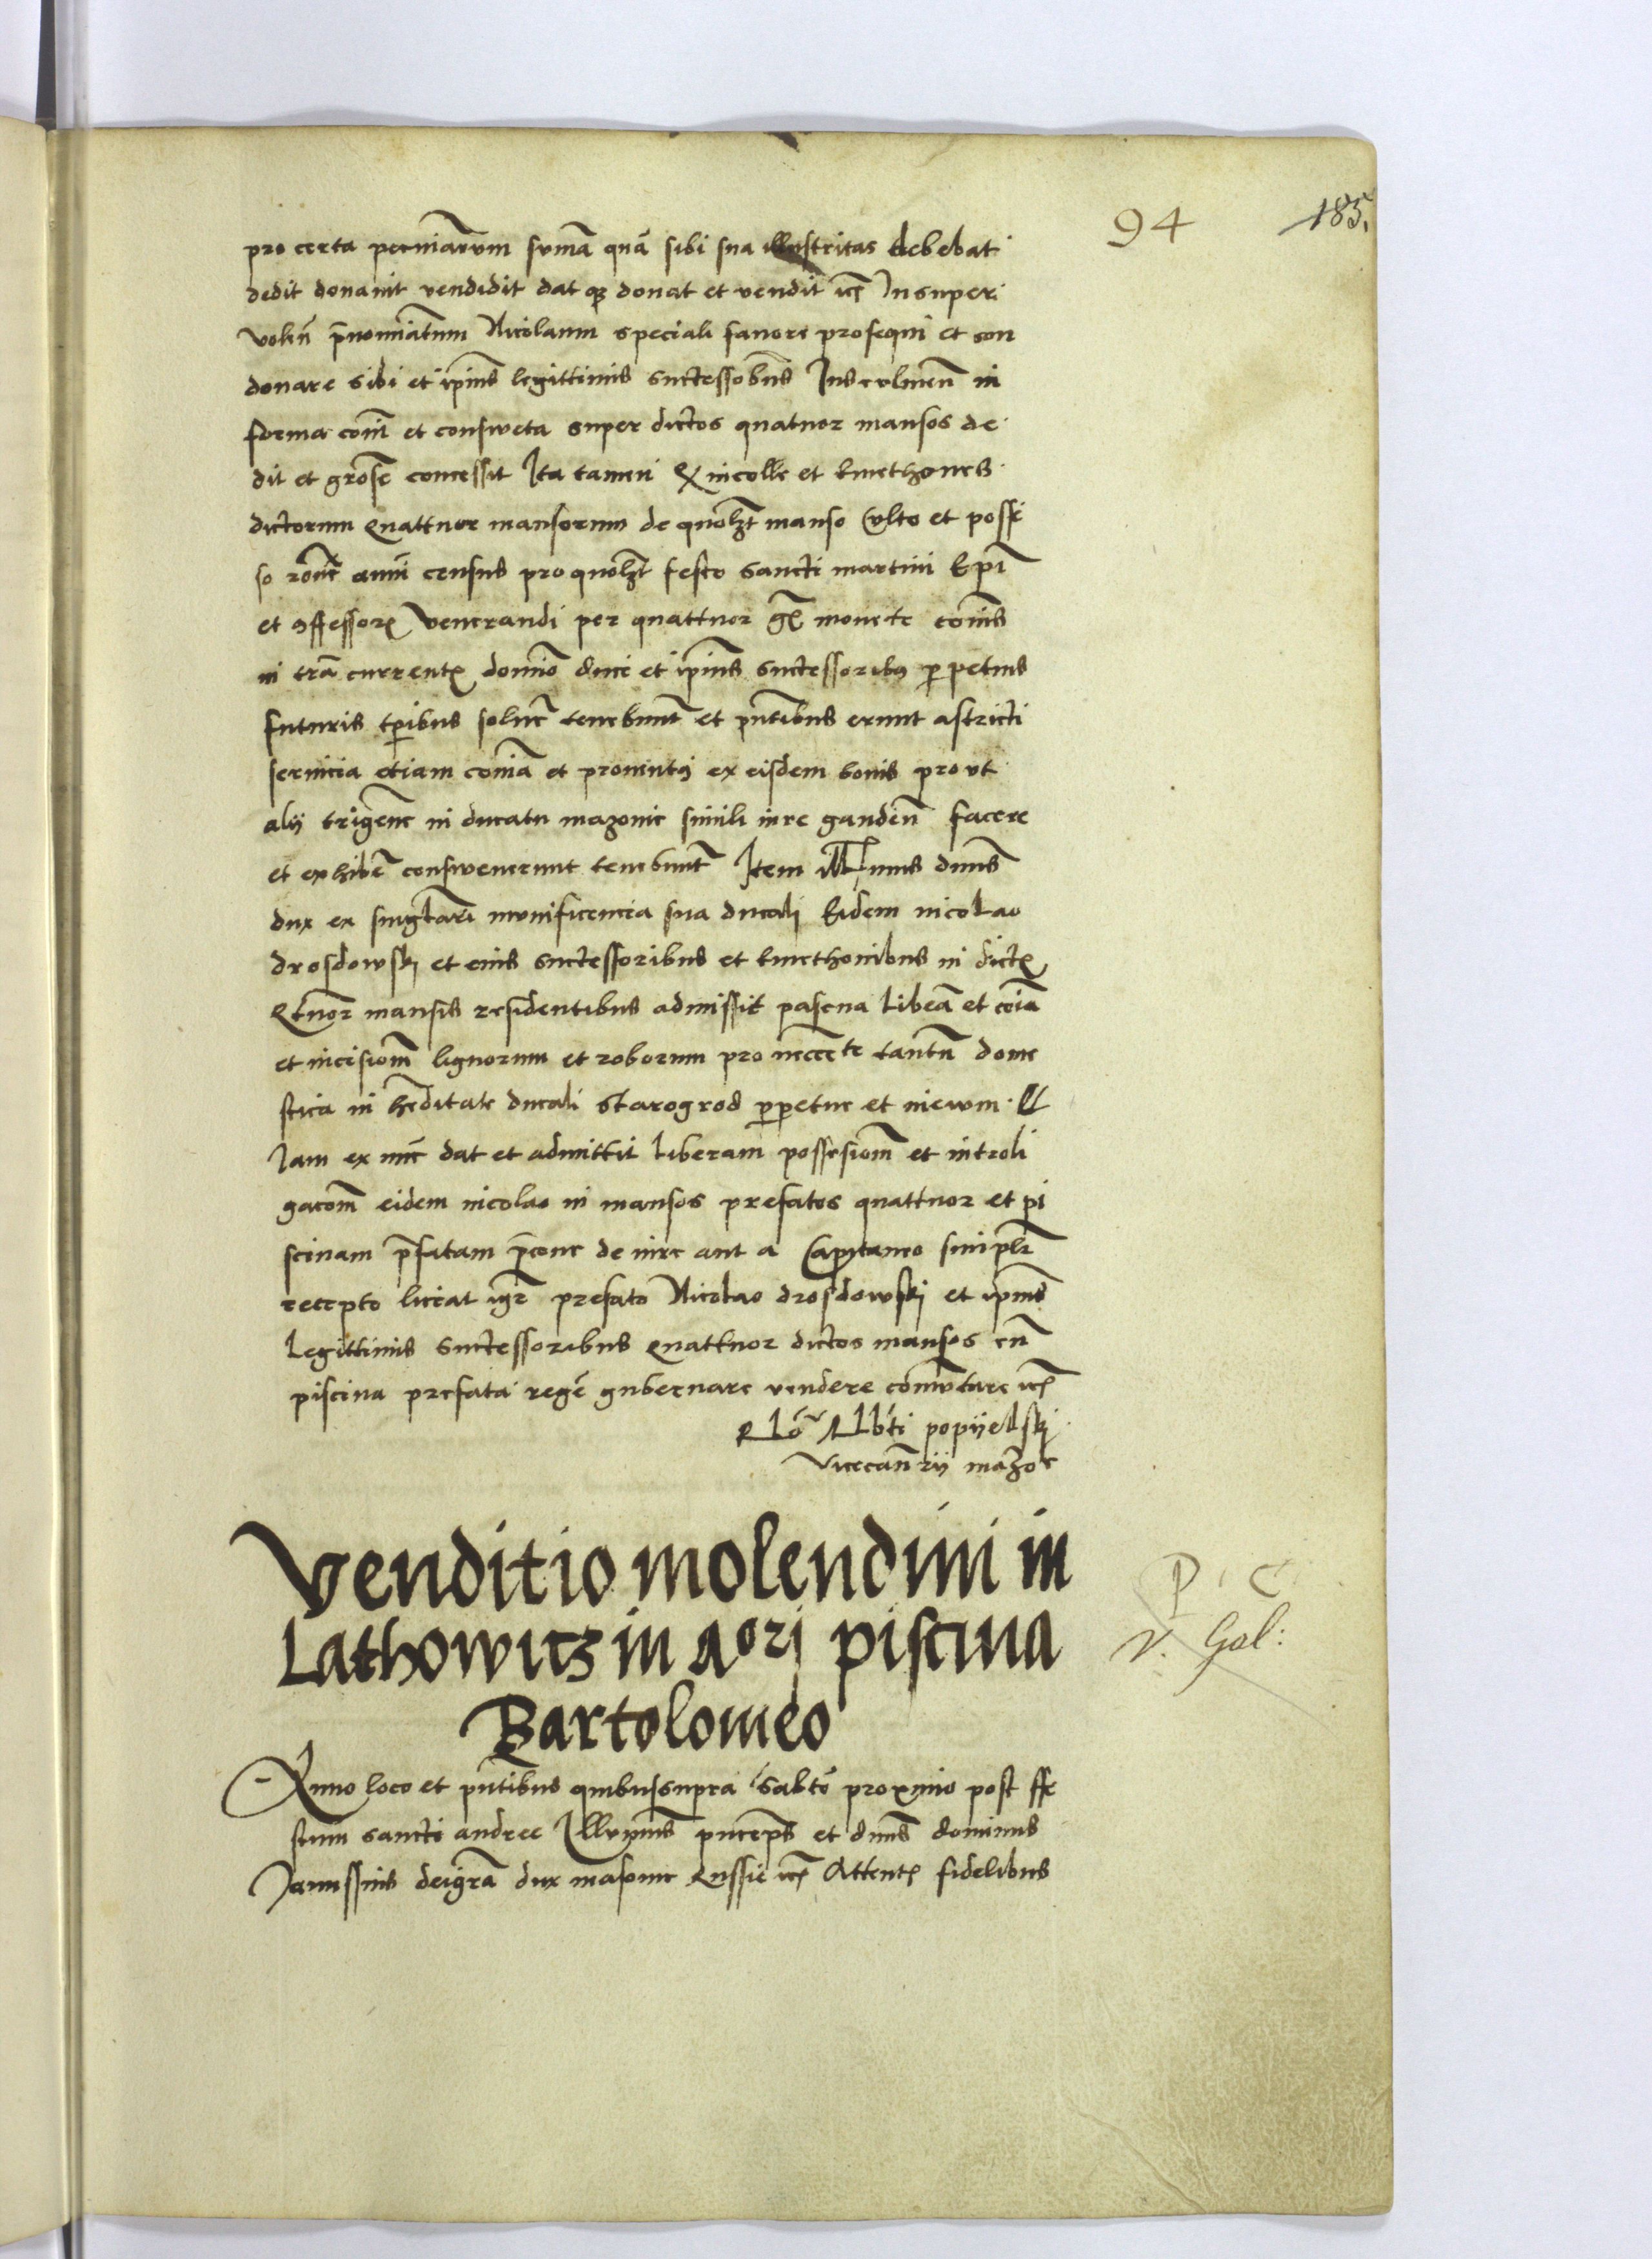 94
185.
pro certa pecuniarum sumã quã sibi sua illustritas debebat
dedit donauit vendidit dat q donat et vendit etc Insuper
volens p̃nominatum Nicolaum speciali fauore prosequi et con
donare sibi et ip̃ius legittimis successoribus Ius culmen̄ in
forma com̄ et consweta super dictos quatuor mansos de
dit et grose concessit Ita tamen q incolle et kmethones
dictorum quattuor mansorum de quolz̄t manso culto et posse
so rone anni census pro quolz̄t festo sancti martini Ep̃i
et 9fessor Venerandi per quattuor g̃ monete com̄is
in trã current domĩo duci et ip̃ius successoribus perpetuis
futuris tp̃ibus soluẽ tenebunt et pñtibus erunt astricti
seruicia etiam com̄ia et prouent9 ex eisdem bonis prout
alij trigeñe in ducatu mazouie simili iure gauden̄ facere
et exhibẽ consweuerunt tenebunt Item illus̃mus dñus
dux ex singulari munificencia sua ducali Eidem nicolao
drosdowskj et eius successoribus et kmethonibus in dict
q̃tuor mansis residentibus admissit pascua liberã et com̄ia
et incisiom̄ lignorum et roborum pro necc̃te tantũ dome
stica in hẽditate ducali starogrod perpetue et in ewm
Iam ex nũc dat et admittit liberam possesiom̄ et introli
gacom̄ eidem nicolao in mansos prefatos quattuor et pi
scinam p̃fatam p̃cone de iure aut a Capitaneo simplr
recepto liceat igr̃ prefato Nicolao drosdowskj et ip̃ius
legittimis successoribus quattuor dictos mansos cũ
piscina prefata regẽ gubernare vendere com̄utare etc
Rlõ Alb̃ti popijelskj
Vicecan̄rij mazoe
Venditio molendini in
Lathowicz in aorj piscina
Bartolomeo
P C
V. Gal:
Anno loco et pñtibus quibussupra Sabtõ proximo post ffe
stum sancti andree Illus̃mus princeps et dñus dominus
Janussius deigr̃a dux masouie Russie etc Attent fidelibus